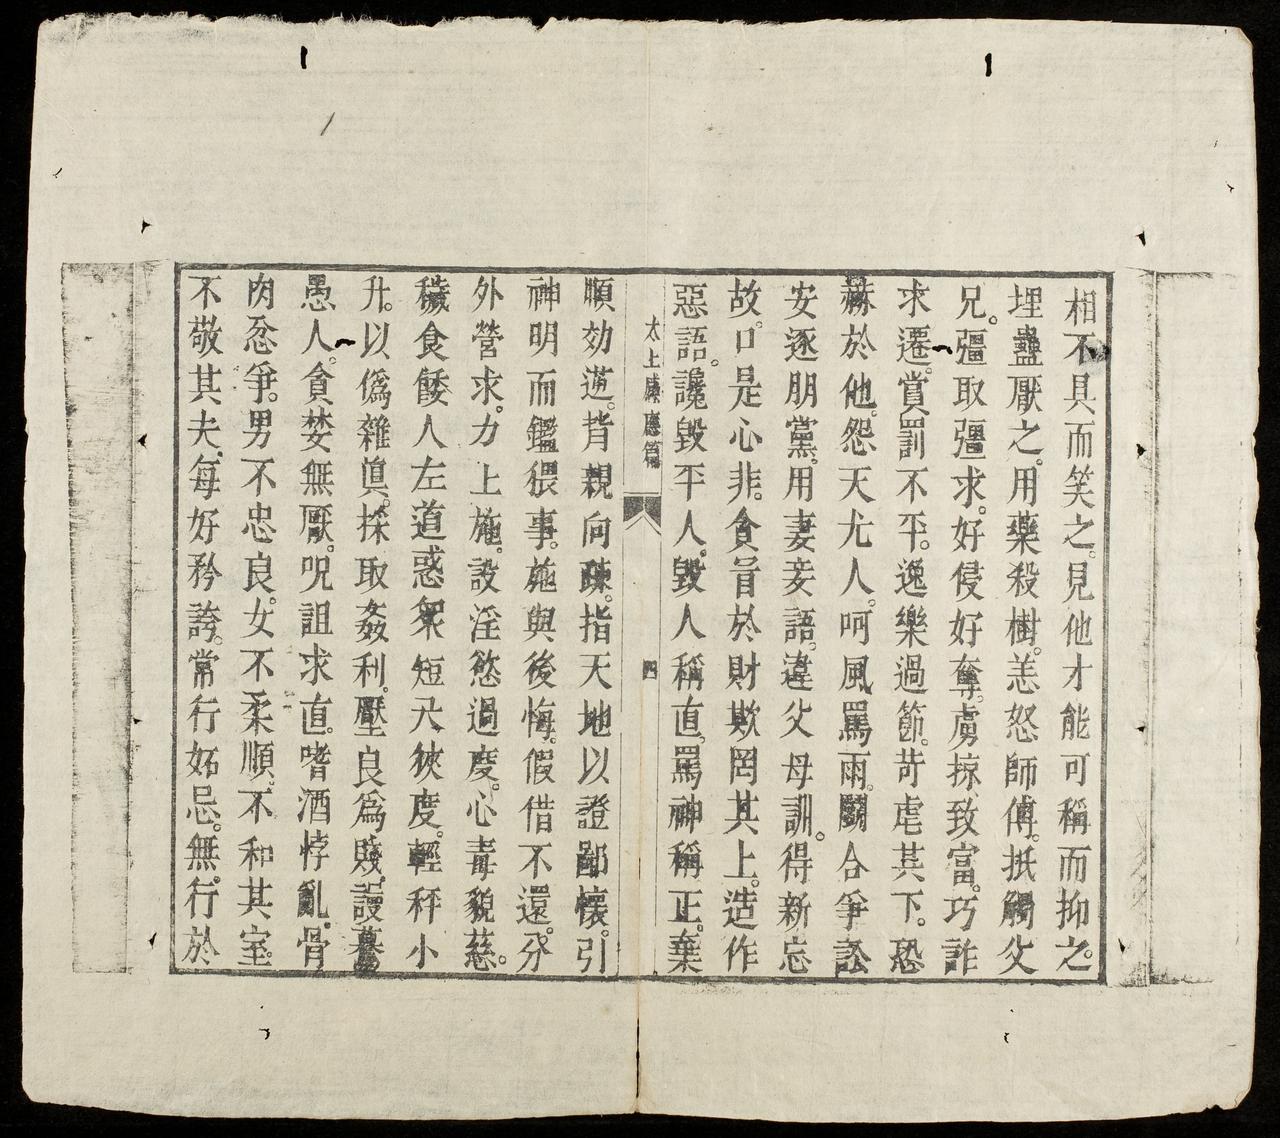 相不具而笑之。見他才能可稱而抑之。
埋蠱厭之。用藥殺樹。恙怒師傅。抵觸父
兄。彊取彊求。好侵好奪。虜掠致富。巧詐
求遷。賞罰不平。逸樂過節。苛虐其下。恐
赫於他。怨天尤人。呵風罵雨。鬭合爭訟
安逐朋黨。用妻妾語。違父母訓。得新忘
故。口是心非。貪冒於財欺罔其上。造作
惡語。讒毀平人。毀人稱直。罵神稱正。棄
太上感應篇
四
順効逆。背親向疎。指天地以證鄙懷。引
神明而鑑猥事。施與後悔。假借不還。分
外營求。力上施。設淫慾過度。心毒貌慈。
穢食餧人左道惑衆短尺狹度。輕秤小
升。以僞雜眞。採取姦利。壓良爲賤。謾驀
愚人。貪婪無厭。呪詛求直。嗜酒悖亂。骨
肉忿爭。男不忠良。女不柔順。不和其室。
不敬其夫。每好矜誇。常行妬忌。無行於